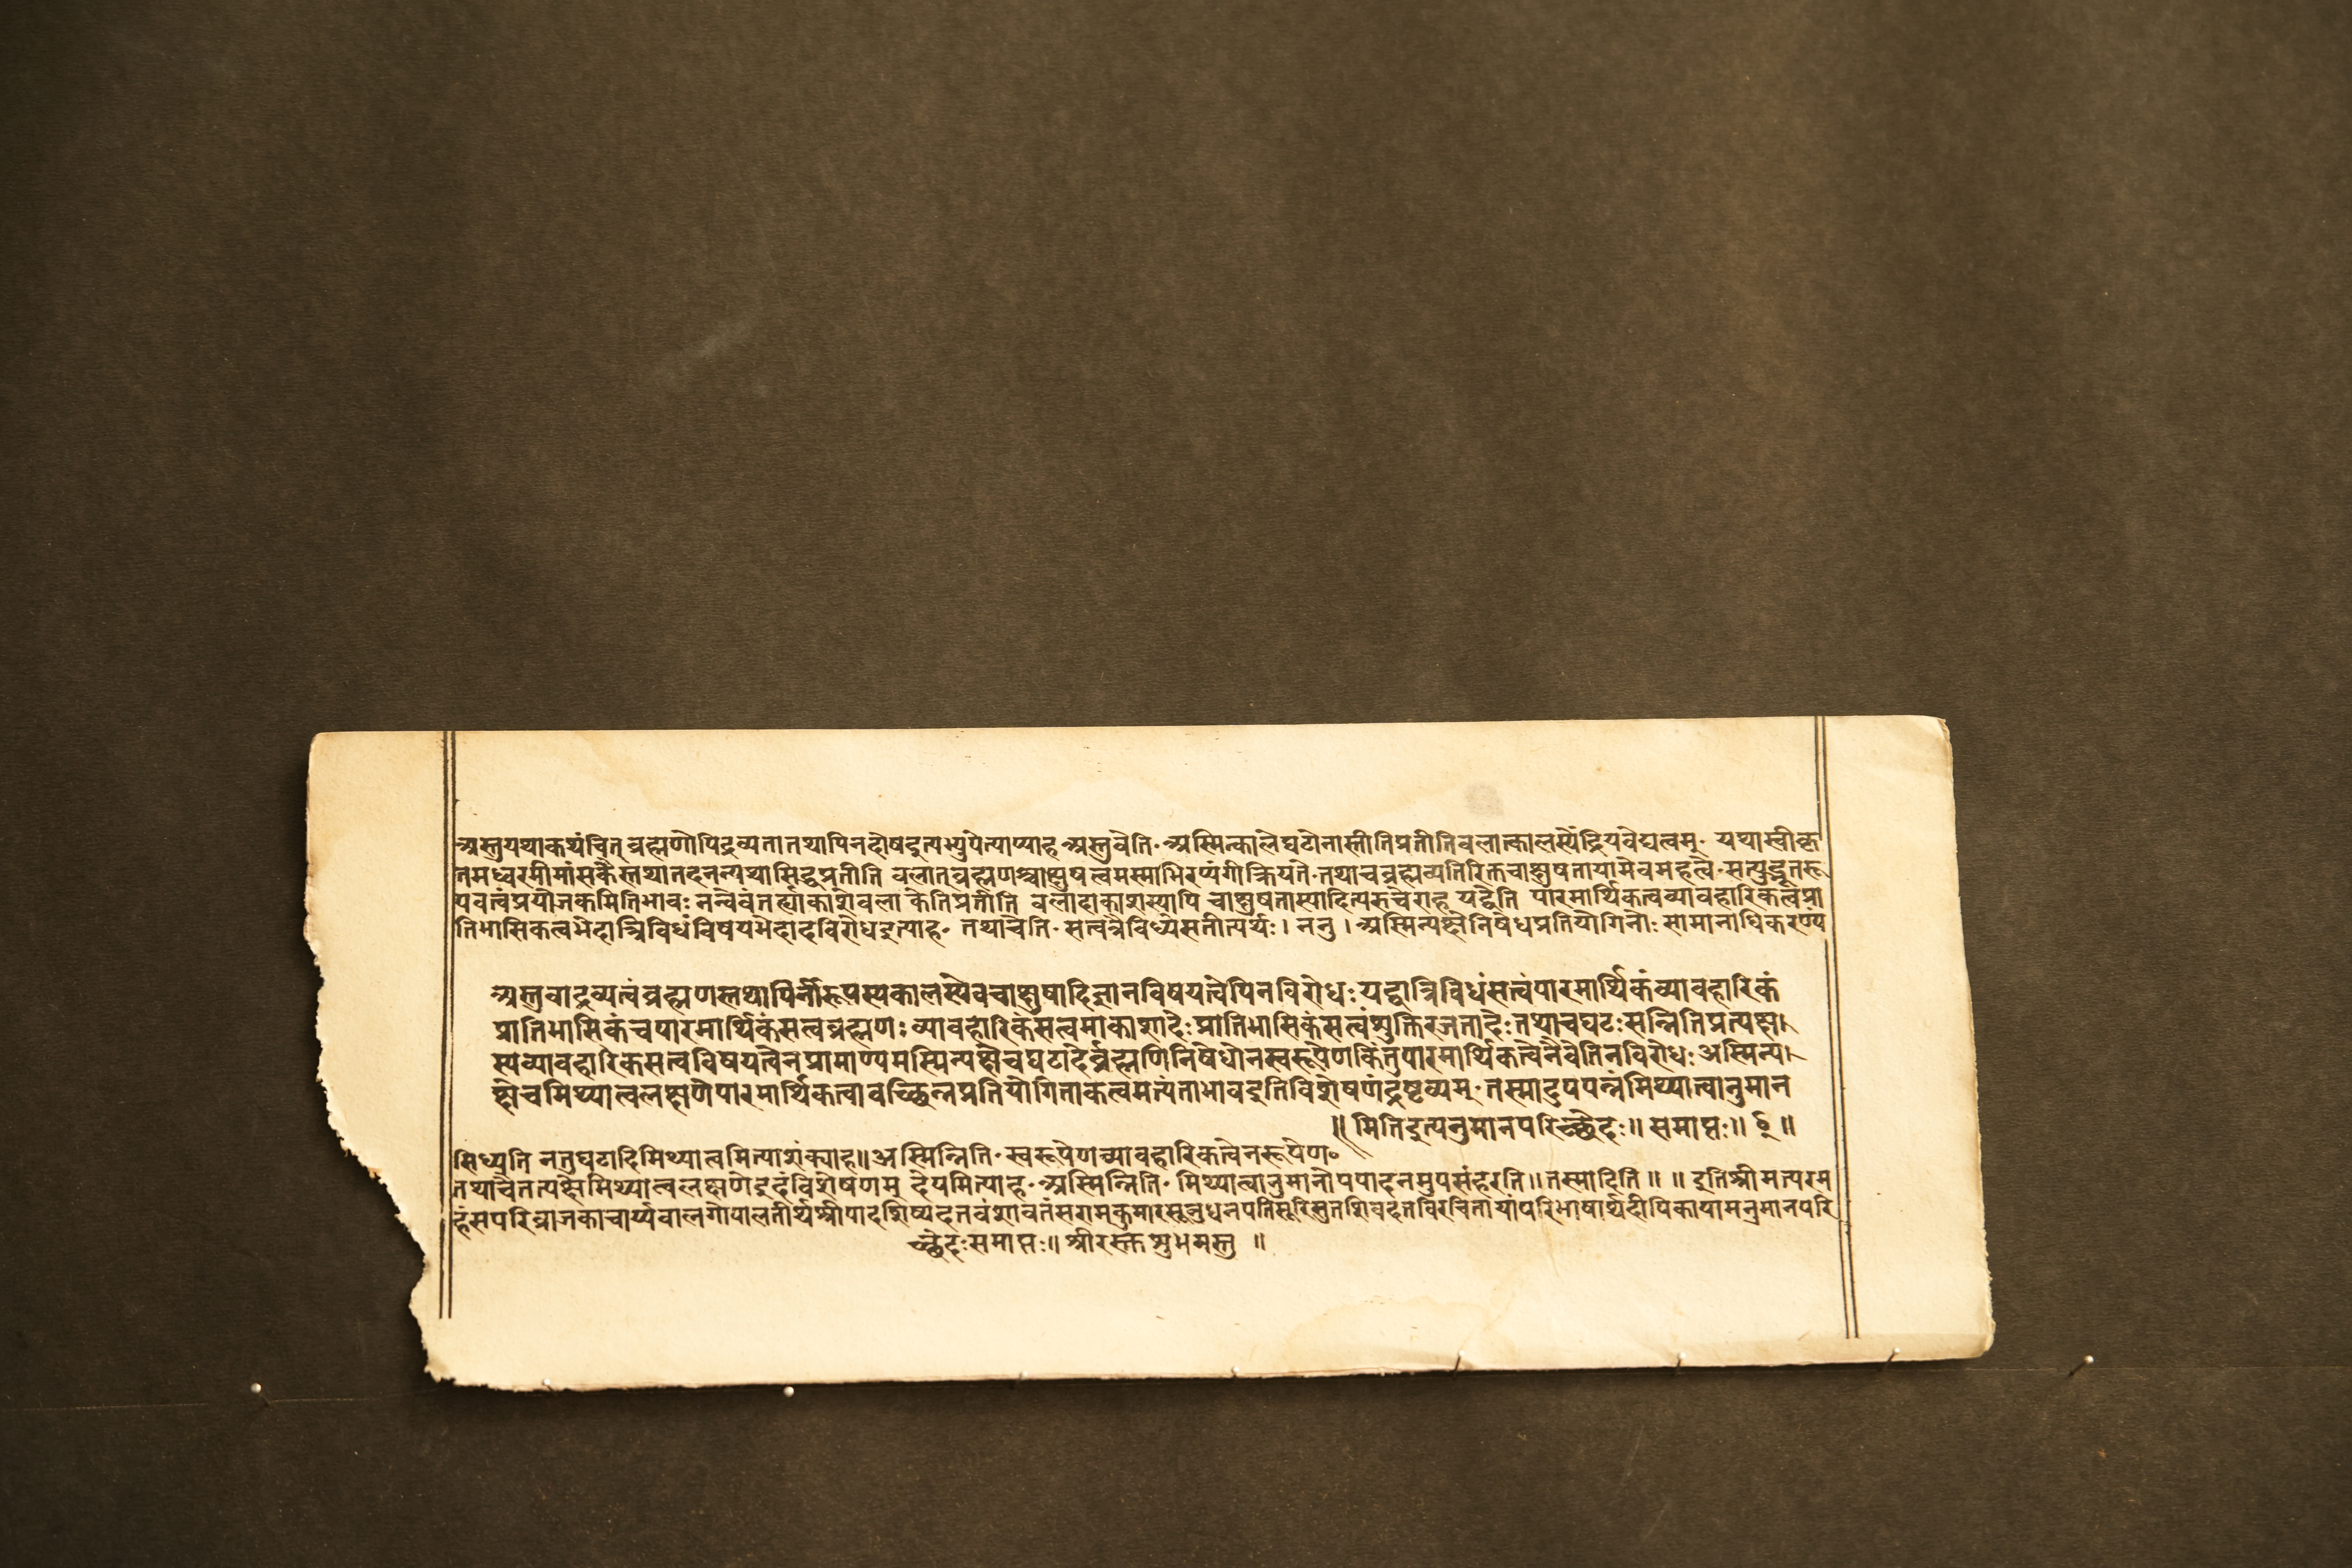 अस्तुयथाकथंचित् ब्रह्मणोपिद्रव्यतातथापिनदोषइत्यभ्युपेत्याप्याह अस्तुवेति॰ अस्मिन्कालेघटोनास्तीतिप्रतीतिवलात्कालस्येंद्रियवेद्यत्वम्॰ यथास्वीकृ
तमध्वरमीमांसकैस्तथातदनन्यथासिद्धप्रतीति वलात्ब्रह्मणश्चाक्षुषत्वमस्माभिरप्यंगीक्रियते॰तथाचब्रह्मव्यतिरिक्तचाक्षुषतायामेवमहत्वे॰सत्युद्भूतरू
पवत्वंप्रयोजकमितिभावः नन्वेवंतर्ह्याकाशेवलाकेतिप्रतीति वलादाकाशस्यापि चाक्षुषतास्यादित्यरुचेराह यद्वेति पारमार्थिकत्वव्यावहारिकत्वप्रा
तिभासिकत्वभेदात्त्रिविधंविषयभेदादविरोधइत्याह॰ तथाचेति॰ सत्वत्रैविध्येसतीत्यर्थः। ननु । अस्मिन्पक्षेनिषेधप्रतियोगिनोः सामानाधिकरण्यं
अस्तुवाद्रव्यत्वंब्रह्मणस्तथापिनीरूपस्यकालस्येवचाक्षुषादिज्ञानविषयत्वेपिनविरोधः यद्वात्रिविधंसत्वंपारमार्थिकंव्यावहारिकं
प्रातिभासिकंचपारमार्थिकंसत्वंब्रह्मणः व्यावहारिकंसत्वमाकाशादेः प्रातिभासिकंसत्वंशुक्तिरजतादेः तथाचघटः सन्नितिप्रत्यक्ष
स्यव्यावहारिकसत्वविषयत्वेनप्रामाण्यमस्मिन्पक्षेचघटादेर्ब्रह्मणिनिषेधोनस्वरूपेणकिंतुपारमार्थिकत्वेनैवेतिनविरोधः अस्मिन्प
क्षेचमिथ्यात्वलक्षणेपारमार्थिकत्वावच्छिन्नप्रतियोगिताकत्वमत्यंताभावइतिविशेषणंद्रष्टव्यम्॰ तस्मादुपपन्नंमिथ्यात्वानुमान
॥ मितिइत्यनुमानपरिच्छेदः॥ समाप्तः॥ ॥
सिध्यति नतुघटादिमिथ्यात्वमित्याशंक्याह॥अस्मिन्निति॰ स्वरूपेणव्यावहारिकत्वेनरूपेण॰
तथाचैतत्पक्षेमिथ्यात्वलक्षणेइदंविशेषणम् देयमित्याह॰ अस्मिन्निति॰ मिथ्यात्वानुमानोपपादनमुपसंहरति॥तस्मादिति॥ ॥ इतिश्रीमत्परम
हंसपरिव्राजकाचार्य्यवालगोपालतीर्थश्रीपादशिष्यदत्तवंशावतंसरामकुमारसूनुधनपतिसूरिसुतशिवदत्तविरचितायांपरिभाषार्थदीपिकायामनुमानपरि
च्छेदः समाप्तः॥ श्रीरस्तु शुभमस्तु ॥